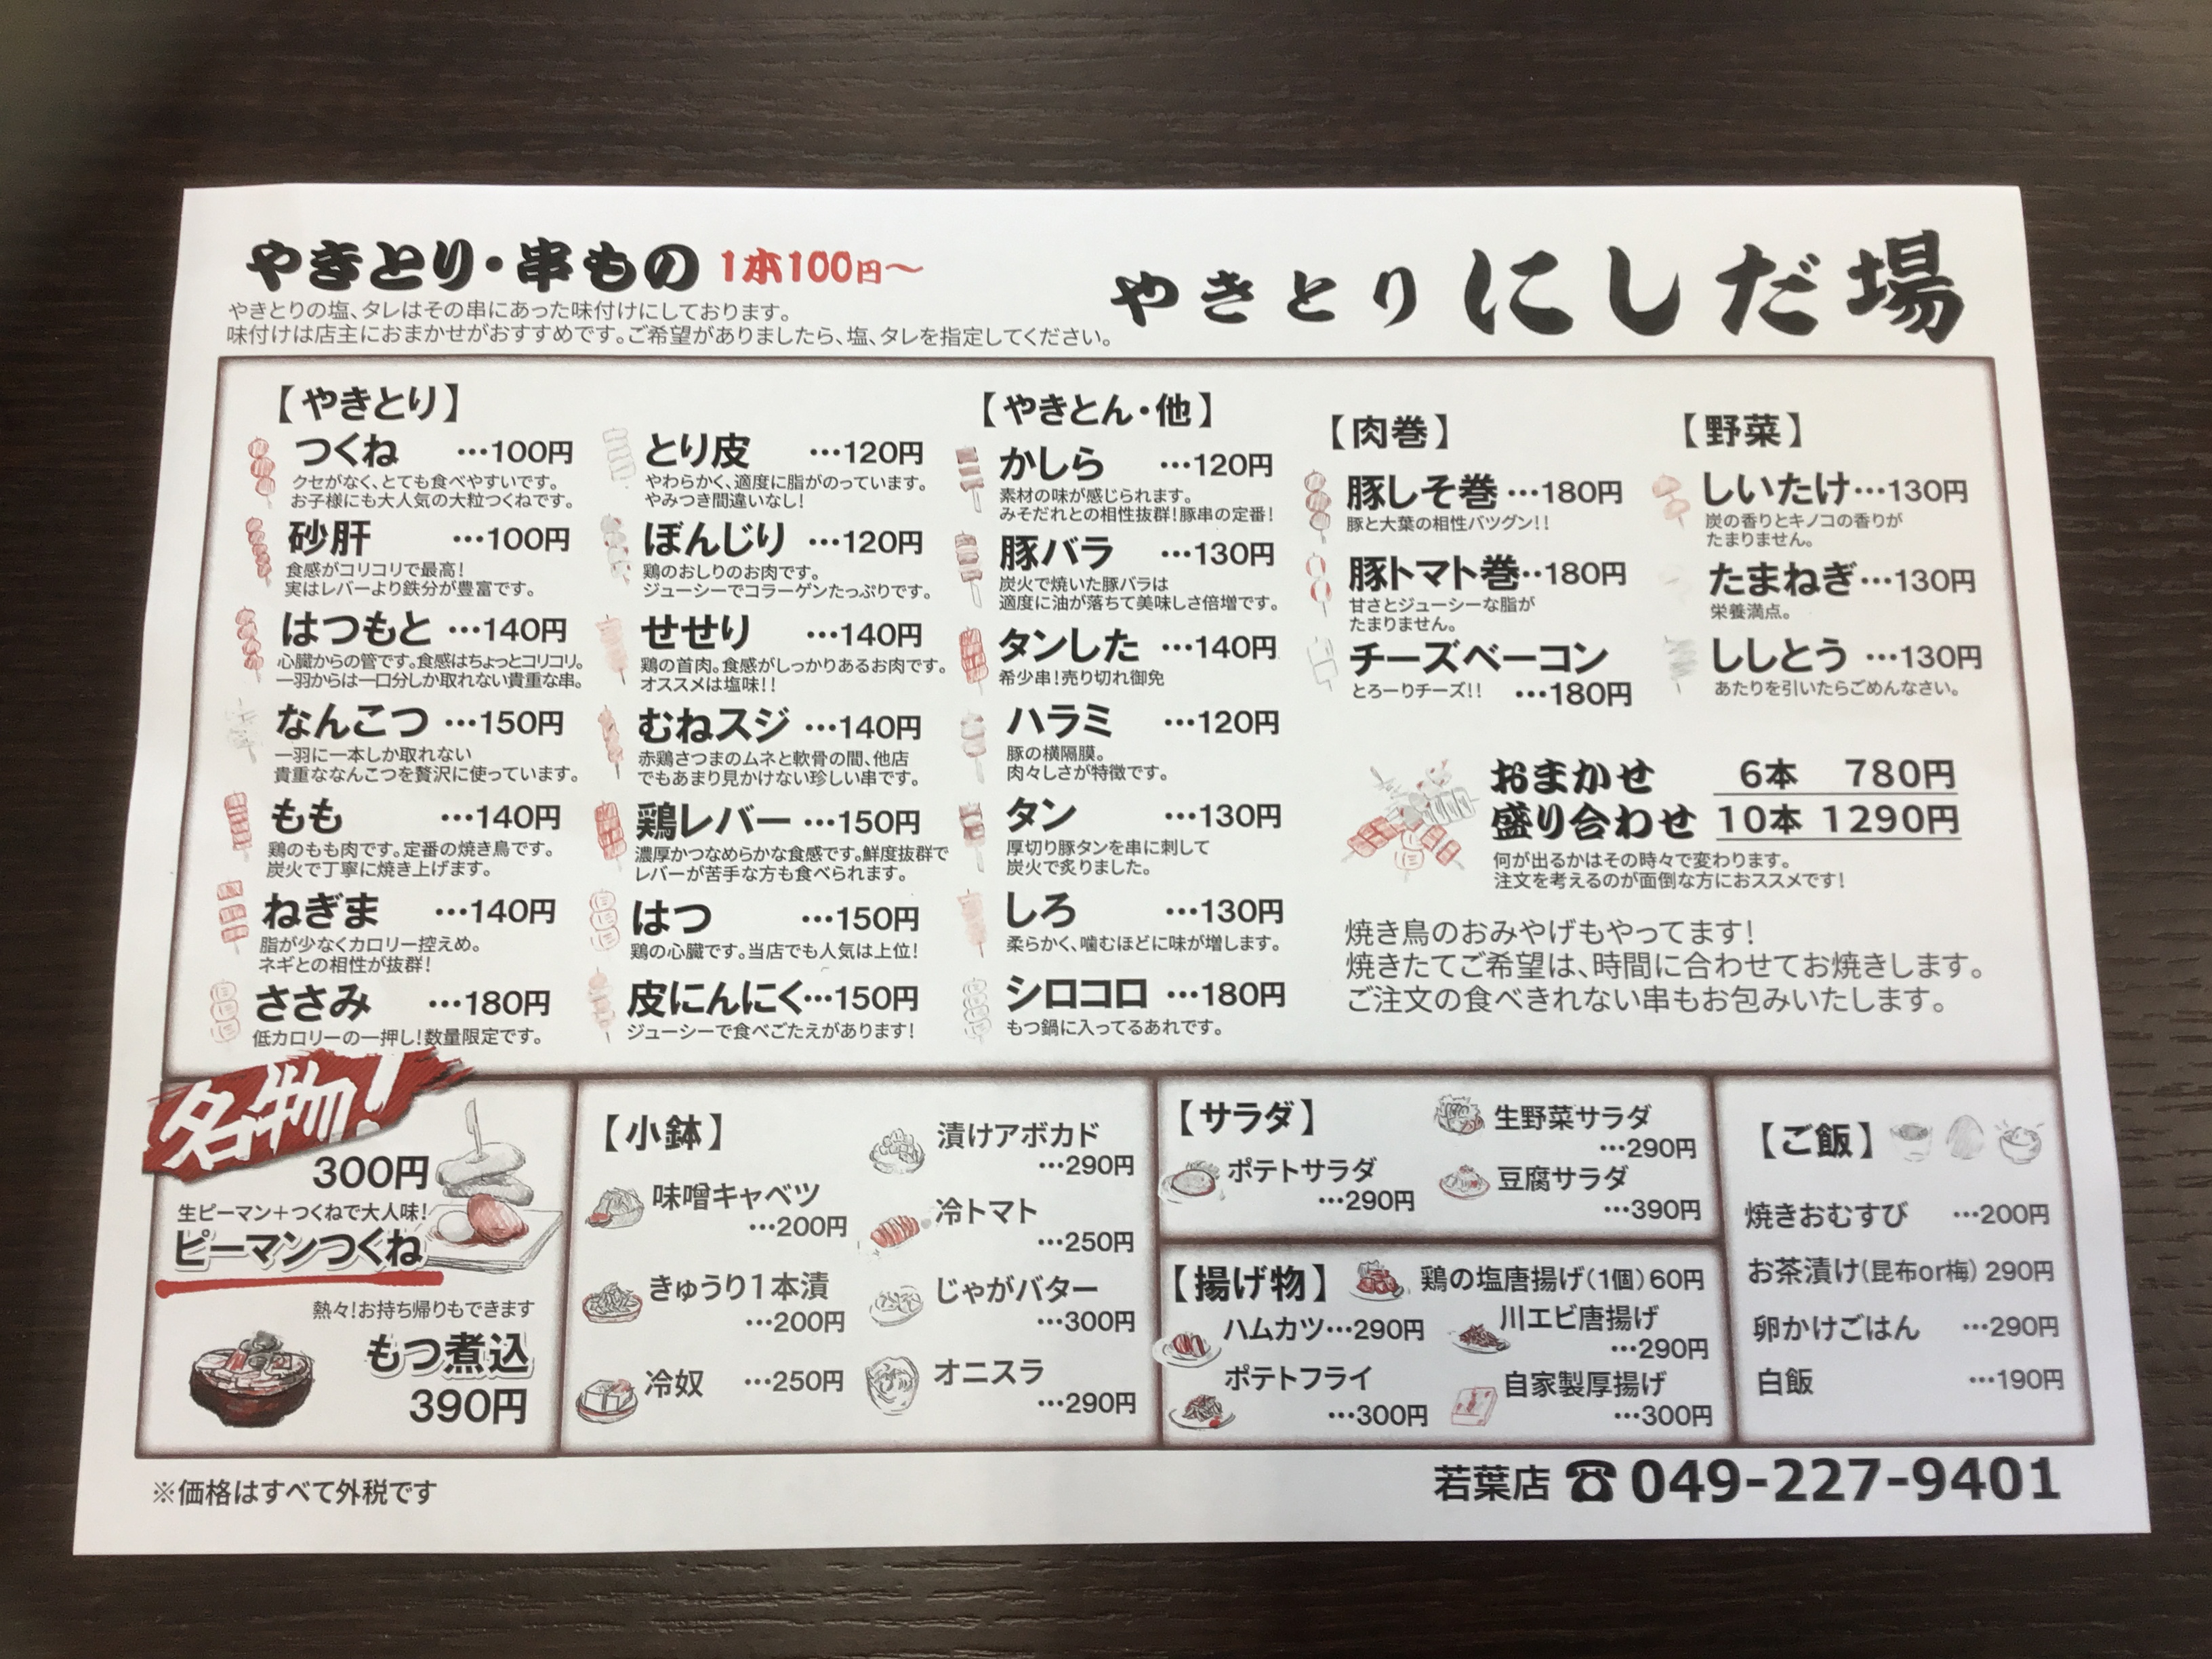 やきとり・串もの 1本100円～
やきとりの塩、タレはその串にあった味付けにしております。
味付けは店主におまかせがおすすめです。ご希望がありましたら、塩、タレを指定してください。
やきとり にしだ場
【やきとり】
つくね …100円
クセがなく、とても食べやすいです。
お子様にも大人気の大粒つくねです。
砂肝 …100円
食感がコリコリで最高！
実はレバーより鉄分が豊富です。
はつもと …140円
心臓からの管です。食感はちょっとコリコリ。
一羽からは一口分しか取れない貴重な串。
なんこつ …150円
一羽に一本しか取れない
貴重ななんこつを贅沢に使っています。
もも …140円
鶏のもも肉です。定番の焼き鳥です。
炭火で丁寧に焼き上げます。
ねぎま …140円
脂が少なくカロリー控えめ。
ネギとの相性が抜群！
ささみ …180円
低カロリーの一押し！数量限定です。
とり皮 …120円
やわらかく、適度に脂がのっています。
やみつき間違いなし！
ぼんじり …120円
鶏のおしりのお肉です。
ジューシーでコラーゲンたっぷりです。
せせり …140円
鶏の首肉。食感がしっかりあるお肉です。
オススメは塩味！！
むねスジ …140円
赤鶏さつまのムネと軟骨の間、他店
でもあまり見かけない珍しい串です。
鶏レバー …150円
濃厚かつなめらかな食感です。鮮度抜群で
レバーが苦手な方も食べられます。
はつ …150円
鶏の心臓です。当店でも人気は上位！
皮にんにく…150円
ジューシーで食べごたえがあります！
【やきとん・他】
かしら …120円
素材の味が感じられます。
みそだれとの相性抜群！豚串の定番！
豚バラ …130円
炭火で焼いた豚バラは
適度に油が落ちて美味しさ倍増です。
タンした …140円
希少串！売り切れ御免
ハラミ …120円
豚の横隔膜。
肉々しさが特徴です。
タン …130円
厚切り豚タンを串に刺して
炭火で炙りました。
しろ …130円
柔らかく、噛むほどに味が増します。
シロコロ …180円
もつ鍋に入ってるあれです。
【肉巻】
豚しそ巻 …180円
豚と大葉の相性バツグン！！
豚トマト巻‥180円
甘さとジューシーな脂が
たまりません。
チーズベーコン
とろーりチーズ！！ …180円
【野菜】
しいたけ…130円
炭の香りとキノコの香りが
たまりません。
たまねぎ…130円
栄養満点。
ししとう …130円
あたりを引いたらごめんなさい。
おまかせ 6本 780円
盛り合わせ 10本 1290円
何が出るかはその時々で変わります。
注文を考えるのが面倒な方におススメです！
焼き鳥のおみやげもやってます！
焼きたてご希望は、時間に合わせてお焼きします。
ご注文の食べきれない串もお包みいたします。
名物！
300円
生ピーマン＋つくねで大人味！
ピーマンつくね
熱々！お持ち帰りもできます
もつ煮込
390円
【小鉢】
味噌キャベツ
…200円
きゅうり1本漬
…200円
冷奴 …250円
漬けアボカド
…290円
冷トマト
…250円
じゃがバター
…300円
オニスラ
…290円
【サラダ】
ポテトサラダ
…290円
生野菜サラダ
…290円
豆腐サラダ
…390円
【揚げ物】
鶏の塩唐揚げ（1個）60円
ハムカツ…290円
川エビ唐揚げ
…290円
ポテトフライ
…300円
自家製厚揚げ
…300円
【ご飯】
焼きおむすび …200円
お茶漬け（昆布or梅）290円
卵かけごはん …290円
白飯 …190円
※価格はすべて外税です
若葉店 ☎ 049-227-9401